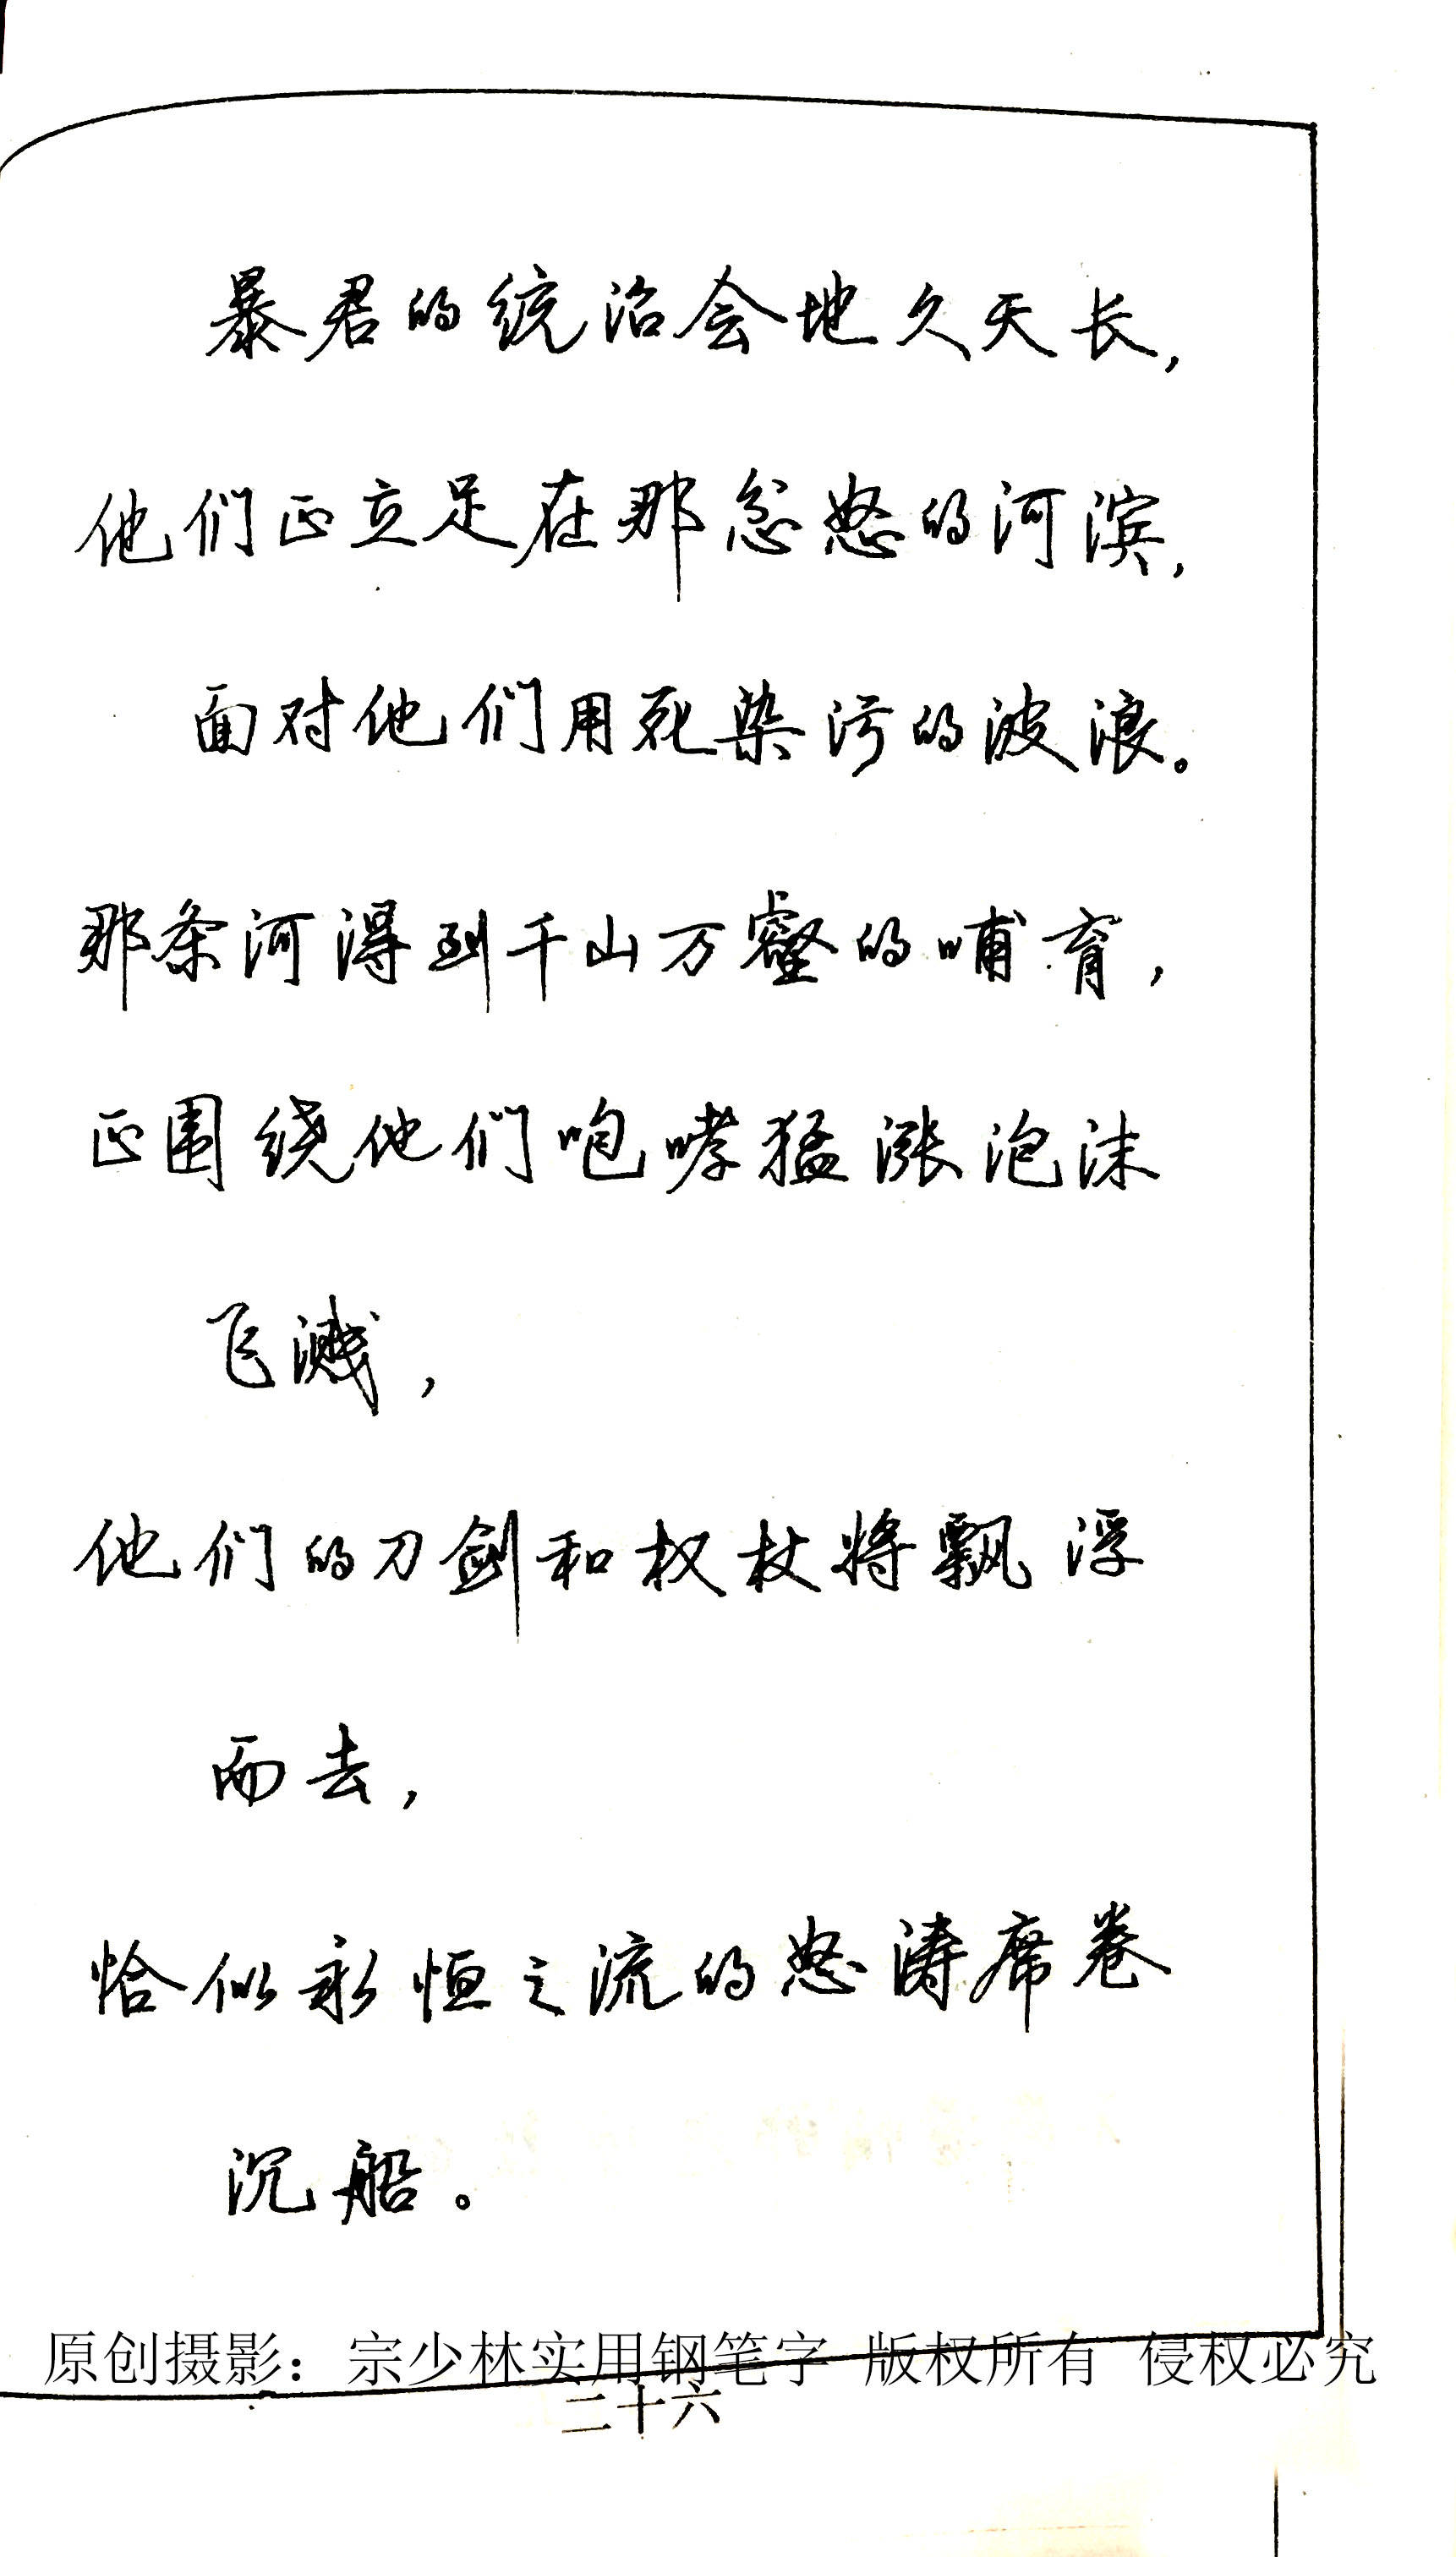 暴君的统治会地久天长，
他们正立足在那忿怒的河滨，
面对他们用死染污的波浪。
那条河得到千山万壑的哺育，
正围绕他们咆哮猛涨泡沫
飞溅，
他们的刀剑和权杖将飘浮
而去，
恰似永恒之流的怒涛席卷
沉船。
原创摄影：宗少林实用钢笔字 版权所有 侵权必究
二十六